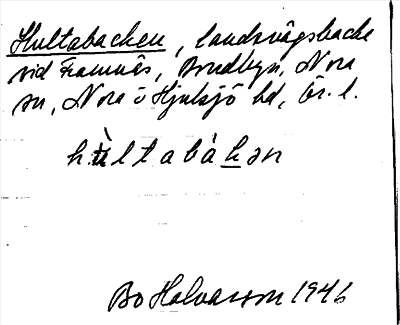 Hultabacken, landsvägsbacke
vid Framnäs, Brudbyn, Nora
sn, Nora o Hjulsjö hd, Ör. l.
hu̇̀ltabàkən
Bo Halvarson 1946